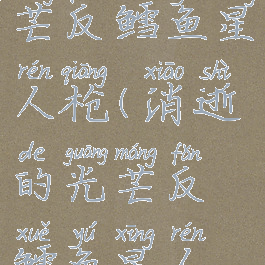 芒反鳕鱼星
rén qiāng xiāo shì
人枪(消逝
de guāng máng fǎn
的光芒反
xuě yú xīng rén
鳕鱼星人